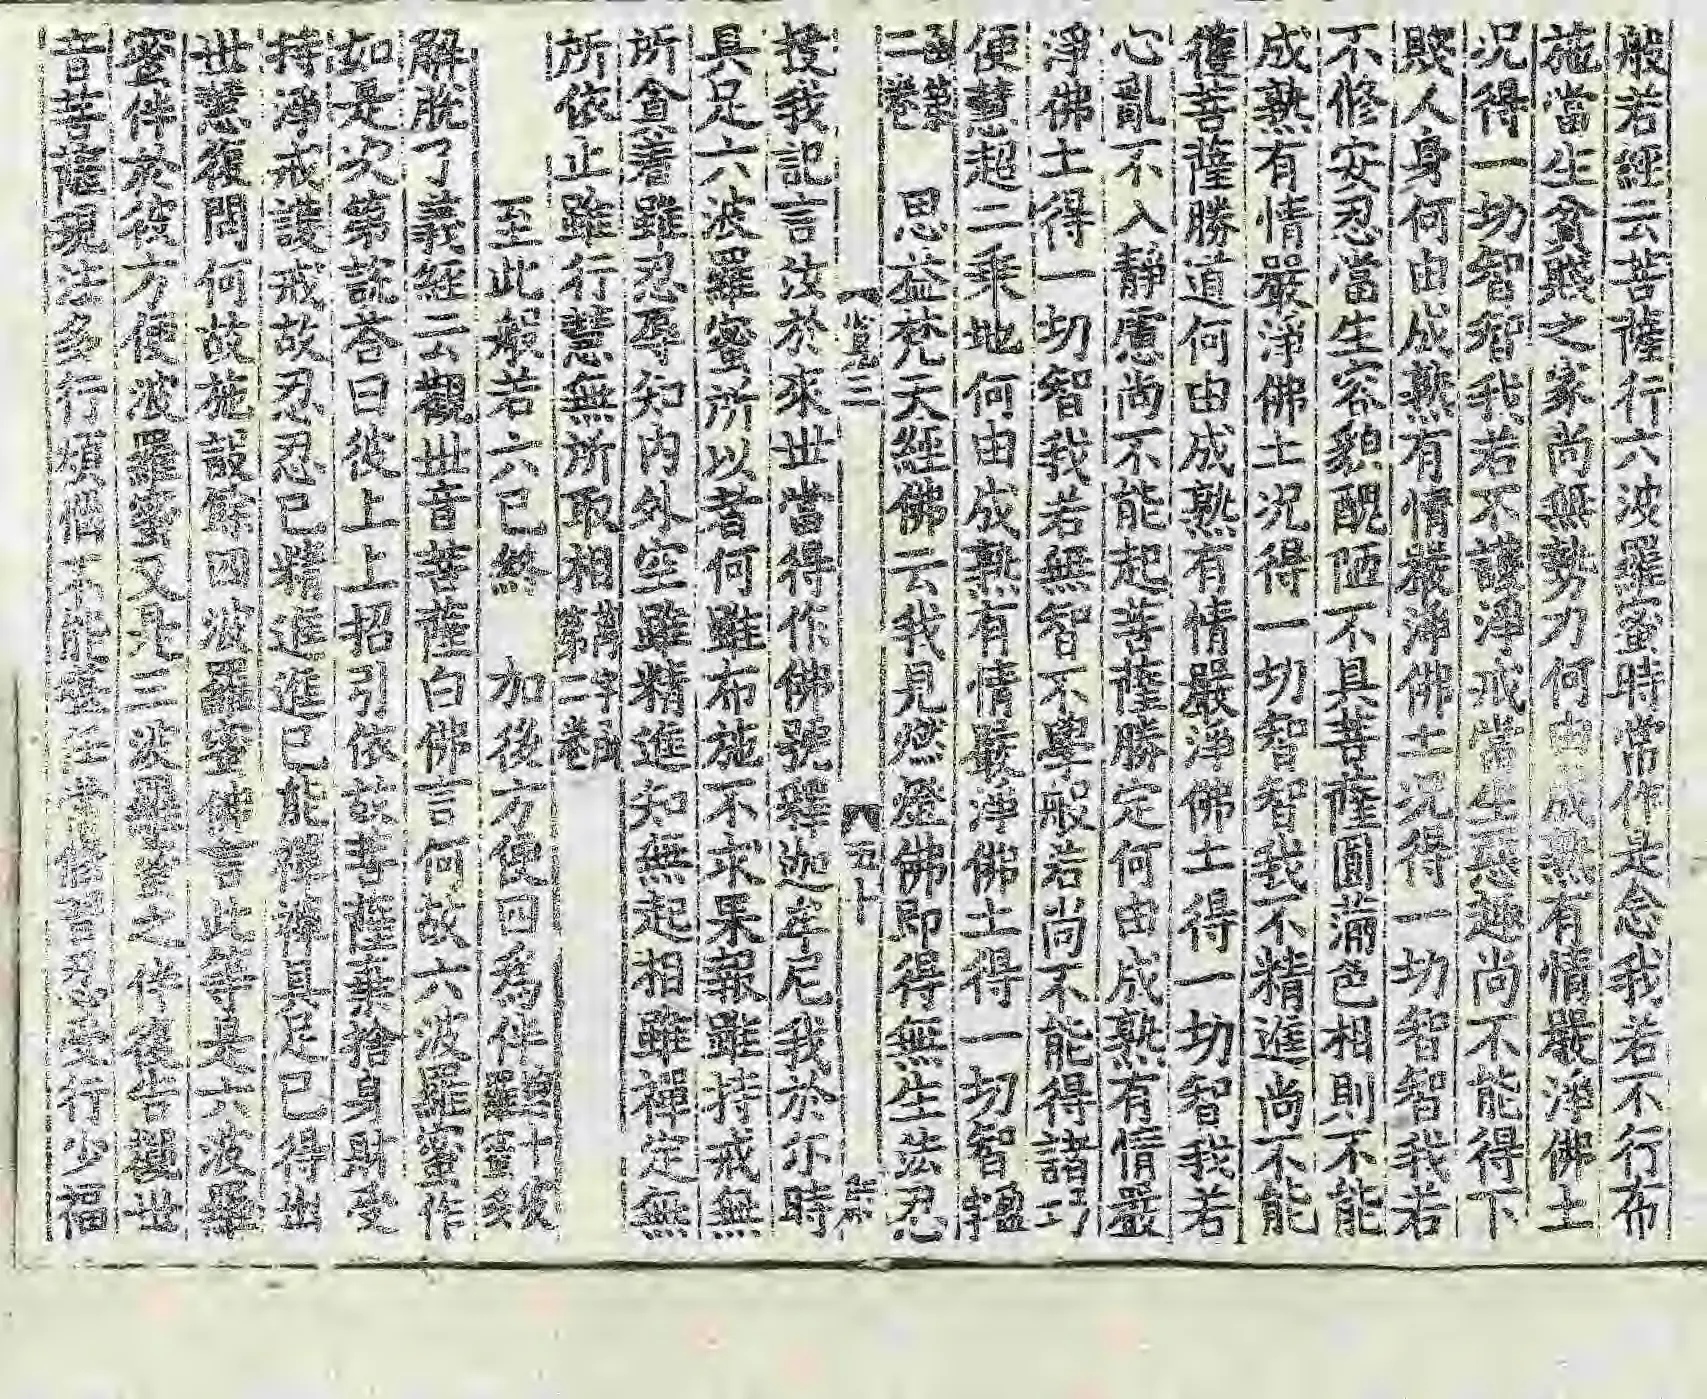 般若經云菩薩行六波羅蜜時常作是念我若不行布
施當生貧賤之家尚無勢力何由成熟有情嚴淨佛土
況得一切智智我若不護淨戒當生惡趣尚不能得下
賤人身何由成熟有情嚴淨佛土況得一切智智我若
不修安忍當生容貌醜陋不具菩薩圓滿色相則不能
成熟有情嚴淨佛土況得一切智智我不精進尚不能
獲菩薩勝道何由成熟有情嚴淨佛土得一切智我若
心亂不入靜慮尚不能起菩薩勝定何由成熟有情嚴
淨佛土得一切智我若無智不學般若尚不能得諸巧
便慧超二乘地何由成熟有情嚴淨佛土得一切智
二卷 思益梵天經佛云我見燃燈佛即得無生法忍
授我記言汝於來世當得作佛號釋迦牟尼我於尓時
具足六波羅蜜所以者何雖布施不求果報雖持戒無
所貪著雖忍辱知內外空雖精進知無起相雖禪定無
所依止雖行慧無所取相
至此般若六已終 加後方便四為伴
解脫了義經云觀世音菩薩白佛言何故六波羅蜜作
如是次第說荅曰彼上上招引依故菩薩棄捨身財受
持淨戒護戒故忍忍已精進進已能禪禪具足已得出
世慧復問何故施設餘四波羅蜜佛言此等是六波羅
蜜伴於彼方便波羅蜜又是三波羅蜜之伴復告觀世
音菩薩現法多行煩惱不能 行少福